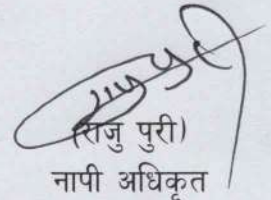 (राजु पुरी)
नापी अधिकृत